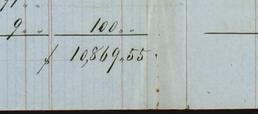 9 " " 100 " "
$ 10,869.55